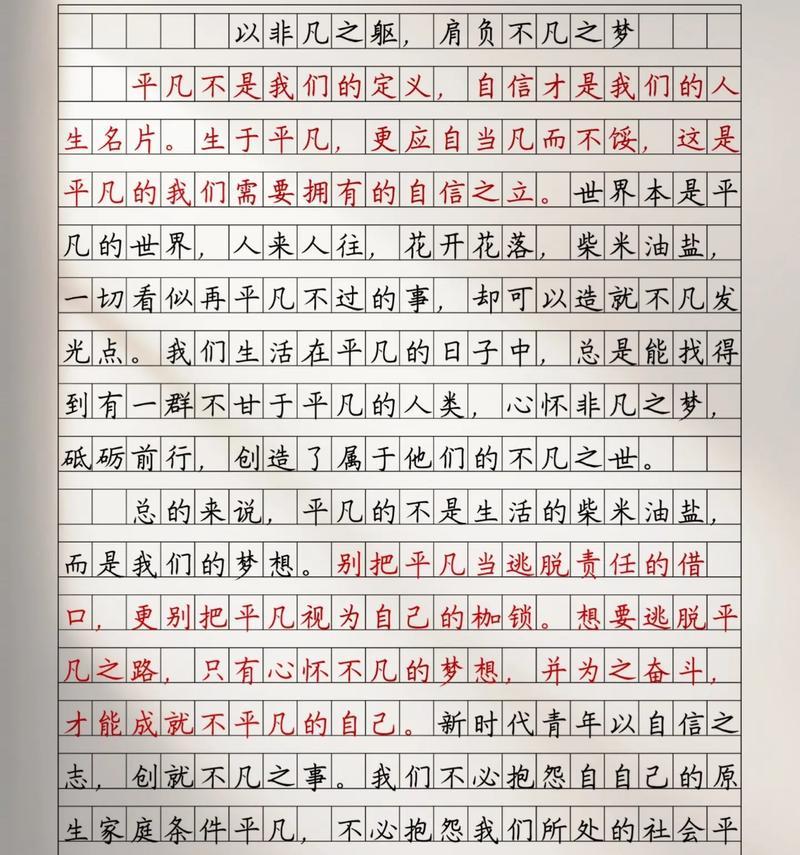 以非凡之躯，肩负不凡之梦
平凡不是我们的定义，自信才是我们的人
生名片。生于平凡，更应自当凡而不馁，这是
平凡的我们需要拥有的自信之立。世界本是平
凡的世界，人来人往，花开花落，柴米油盐，
一切看似再平凡不过的事，却可以造就不凡发
光点。我们生活在平凡的日子中，总是能找得
到有一群不甘于平凡的人类，心怀非凡之梦，
砥砺前行，创造了属于他们的不凡之世。
总的来说，平凡的不是生活的柴米油盐，
而是我们的梦想。别把平凡当逃脱责任的借
口，更别把平凡视为自己的枷锁。想要逃脱平
凡之路，只有心怀不凡的梦想，并为之奋斗，
才能成就不平凡的自己。新时代青年以自信之
志，创就不凡之事。我们不必抱怨自自己的原
生家庭条件平凡，不必抱怨我们所处的社会平